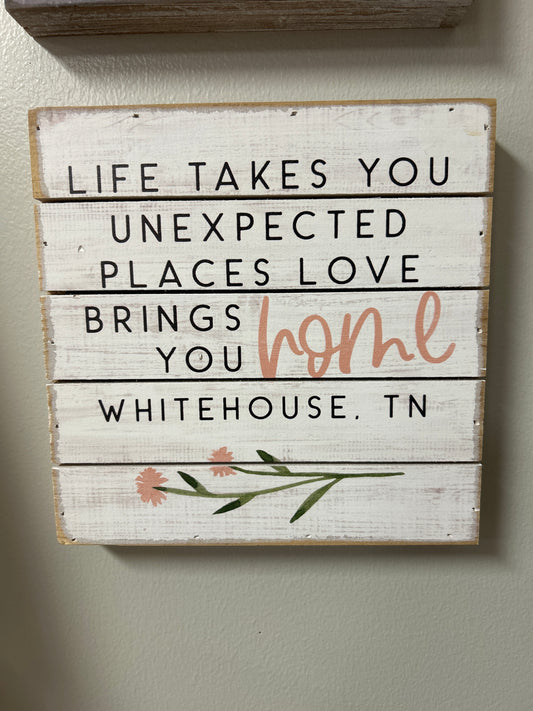 LIFE TAKES YOU
UNEXPECTED
PLACES LOVE
BRINGS home
YOU
WHITEHOUSE, TN